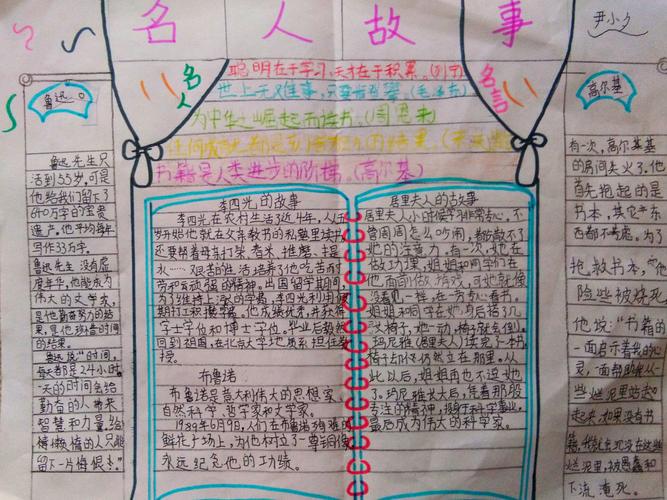 名人故事
尹小夕
名人
名言
聪明在于学习,天才在于积累。(列宁)
世上无难事,只要肯登攀。(毛泽东)
为中华之崛起而读书。(周恩来)
书籍是人类进步的阶梯。(高尔基)
鲁迅
鲁迅先生只
活到55岁,可是
他给我们留下了
640万字的宝贵
遗产,他平均每年
写作33万字。
鲁迅先生没有虚
度年华,他能成为
伟大的文学家,
是他勤奋努力的结
果,是他珍惜时间
的结果。
鲁迅说"时间,
每天都是24小时。
一天的时间会给
勤奋的人带来
智慧和力量,给
懒惰的人只能
留下一片悔恨。"
李四光的故事
李四光在农村生活了近14年,从五
岁开始他就在父亲教书的私塾里读书
还要帮着母亲打柴、舂米、推磨、提
水……艰苦的生活培养了他吃苦耐
劳和劳动强的精神。出国留学期间,
为了维持上深的学习,李四光利用假
期打工积攒学费。他成绩优秀,并获得
学士学位和博士学位。毕业后毅然
回到祖国,在北京大学地质系担任教
授。
布鲁诺
布鲁诺是意大利伟大的思想家、
自然科学、哲学家和文学家。
1989年6月9日,人们在布鲁诺殉难的
鲜花广场上,为他树立了一尊铜像
永远纪念他的功绩。
居里夫人的故事
居里夫人小时候学习非常专心,不
管周周怎么吵闹,都散散不了
她的注意力。有一次,她在
做功课,姐姐和同学们在
他面前做游戏,可她就像
没看见一样,在一旁专心看书。
姐姐和同学在她身后搭几
张椅子,她一动,椅子就会倒。
玛尼雅(居里夫人)读完了一本书,
椅子仍然竖立在那里。从
此以后,姐姐再也不逗她
了。玛尼雅长大后,凭着那股
专注的精神,投身科学事业,
最后成为伟大的科学家。
高尔基
有一次,高尔基
的房间失火了。他
首先抱起的是
书本,其它东
西都不考虑。为了
抢救书本,他
险些被烧死
他说:"书籍
一面启示着我的心
灵,一面帮助我从
一些烂泥里站
起来,如果没有书
籍,我就会沉没在这些
烂泥里,被愚蠢和
下流淹死。